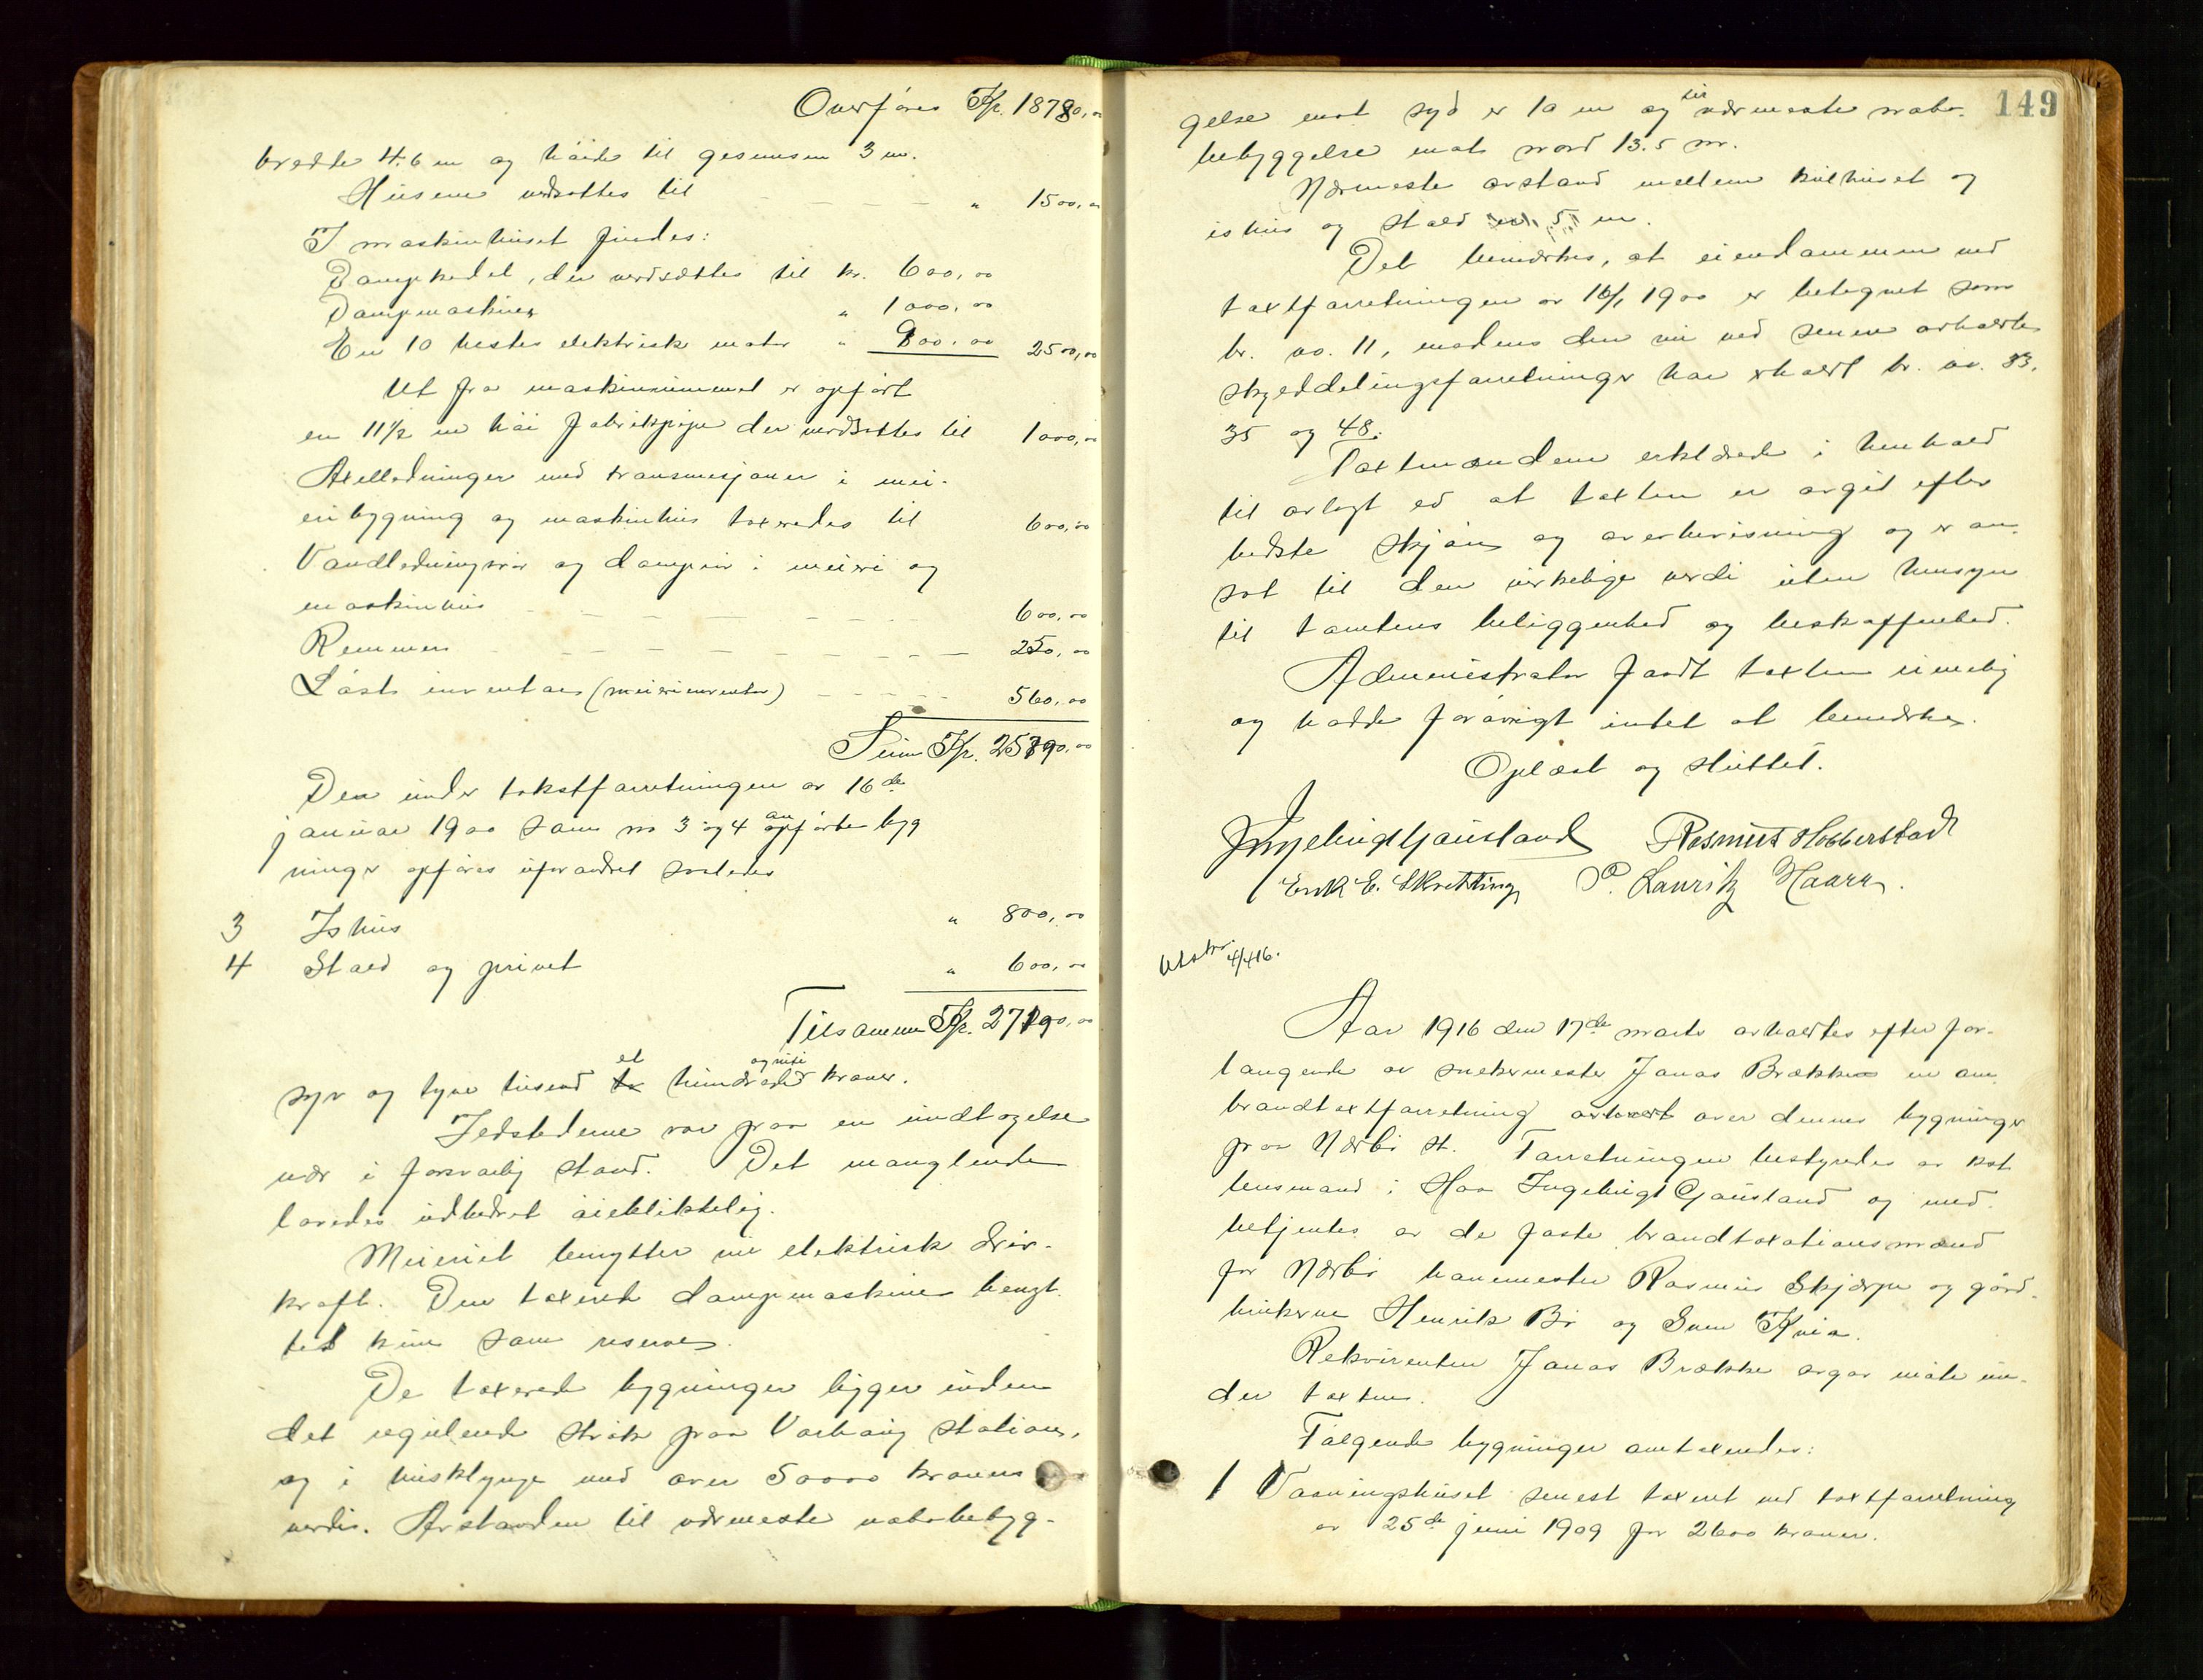 Overføres Kr. 18780,00
bredde 4.6 m og høide til gesimsen 3 m.
Husene verdsættes til — — — — " 1500,00
I maskinhuset findes:
Dampkedel, der verdsættes til kr. 600,00
Dampmaskiner " 1000,00
En 10 hestes elektrisk motor " 900,00 2500,00
Ut fra maskinrummet er opført
en 11½ m høi fabrikpipe der verdsættes til 1000,00
Axelledninger med transmisjoner i mei-
eribygning og maskinhus taxeredes til 600,00
Vandledningsrør og damprør i meieri og
maskinhus — — — — — — 600,00
Remmer — — — — — — — 250,00
Løst inventar (meieriinventar) — — — — 560,00
Sum Kr. 25790,00
Den under takstforretningen av 16de
januar 1900 som no 3 og 4 anførte byg
ninger opføres uforandret saaledes
3 Ishus " 800,00
4 Stald og privet " 600,00
Tilsammen Kr. 27190,00
syv og tyve tusend et hundrede og niti kroner.
Ildstederne var paa en undtagelse
nær i forsvarlig stand. Det manglende
lovedes udbedret øieblikkelig.
Meieriet benytter nu elektrisk driv-
kraft. Den taxerede dampmaskiner benyt-
tes kun som reserve.
De taxerede bygninger ligger inden
det regulerede strøk paa Varhaug station,
og i husklynge med over 50000 kroners
verdi. Avstanden til nærmeste nabobebyg-
149
gelse mot syd er 10 m og til nærmeste nabo-
bebyggelse mot nord 13.5 m.
Nærmeste avstand mellem kulhuset og
ishus og stald er 5 m.
Det bemerkes, at eiendommen ved
taxtforretningen av 16/1 1900 er betegnet som
br. no. 11, medens den nu ved senere avholdte
skylddelingsforretninger har erholdt br. no. 33,
35 og 48.
Taxtmændene erklærede i henhold
til avlagt ed at taxten er avgit efter
bedste skjøn og overbevisning og er an-
sat til den virkelige verdi uten hensyn
til tomtens beliggenhed og beskaffenhed.
Administrator fandt taxten rimelig
og hadde forøvrigt intet at bemerke.
Oplæst og sluttet.
Ingebrigt Gausland Rasmus Hobberstad
Erik E. Skretting P. Lauritz Haarr.
Utskr. 4/4 16.
Aar 1916 den 17de marts avholdtes efter for-
langende av snekermester Jonas Brække en om-
brandtaxtforretning avholdt over dennes bygninger
paa Nærbø st. Forretningen bestyredes av kst
lensmand i Haa Ingebrigt Gausland og med-
betjentes av de faste brandtaxationsmænd
for Nærbø banemester Rasmus Skjærpe og gård-
brukerne Henrik Bø og Sven Kvia.
Rekvirenten Jonas Brække avgav møte un-
der taxten.
Følgende bygninger omtaxeredes:
1 Vaaningshuset senest taxeret ved taxtforretning
av 25de juni 1909 for 2600 kroner.